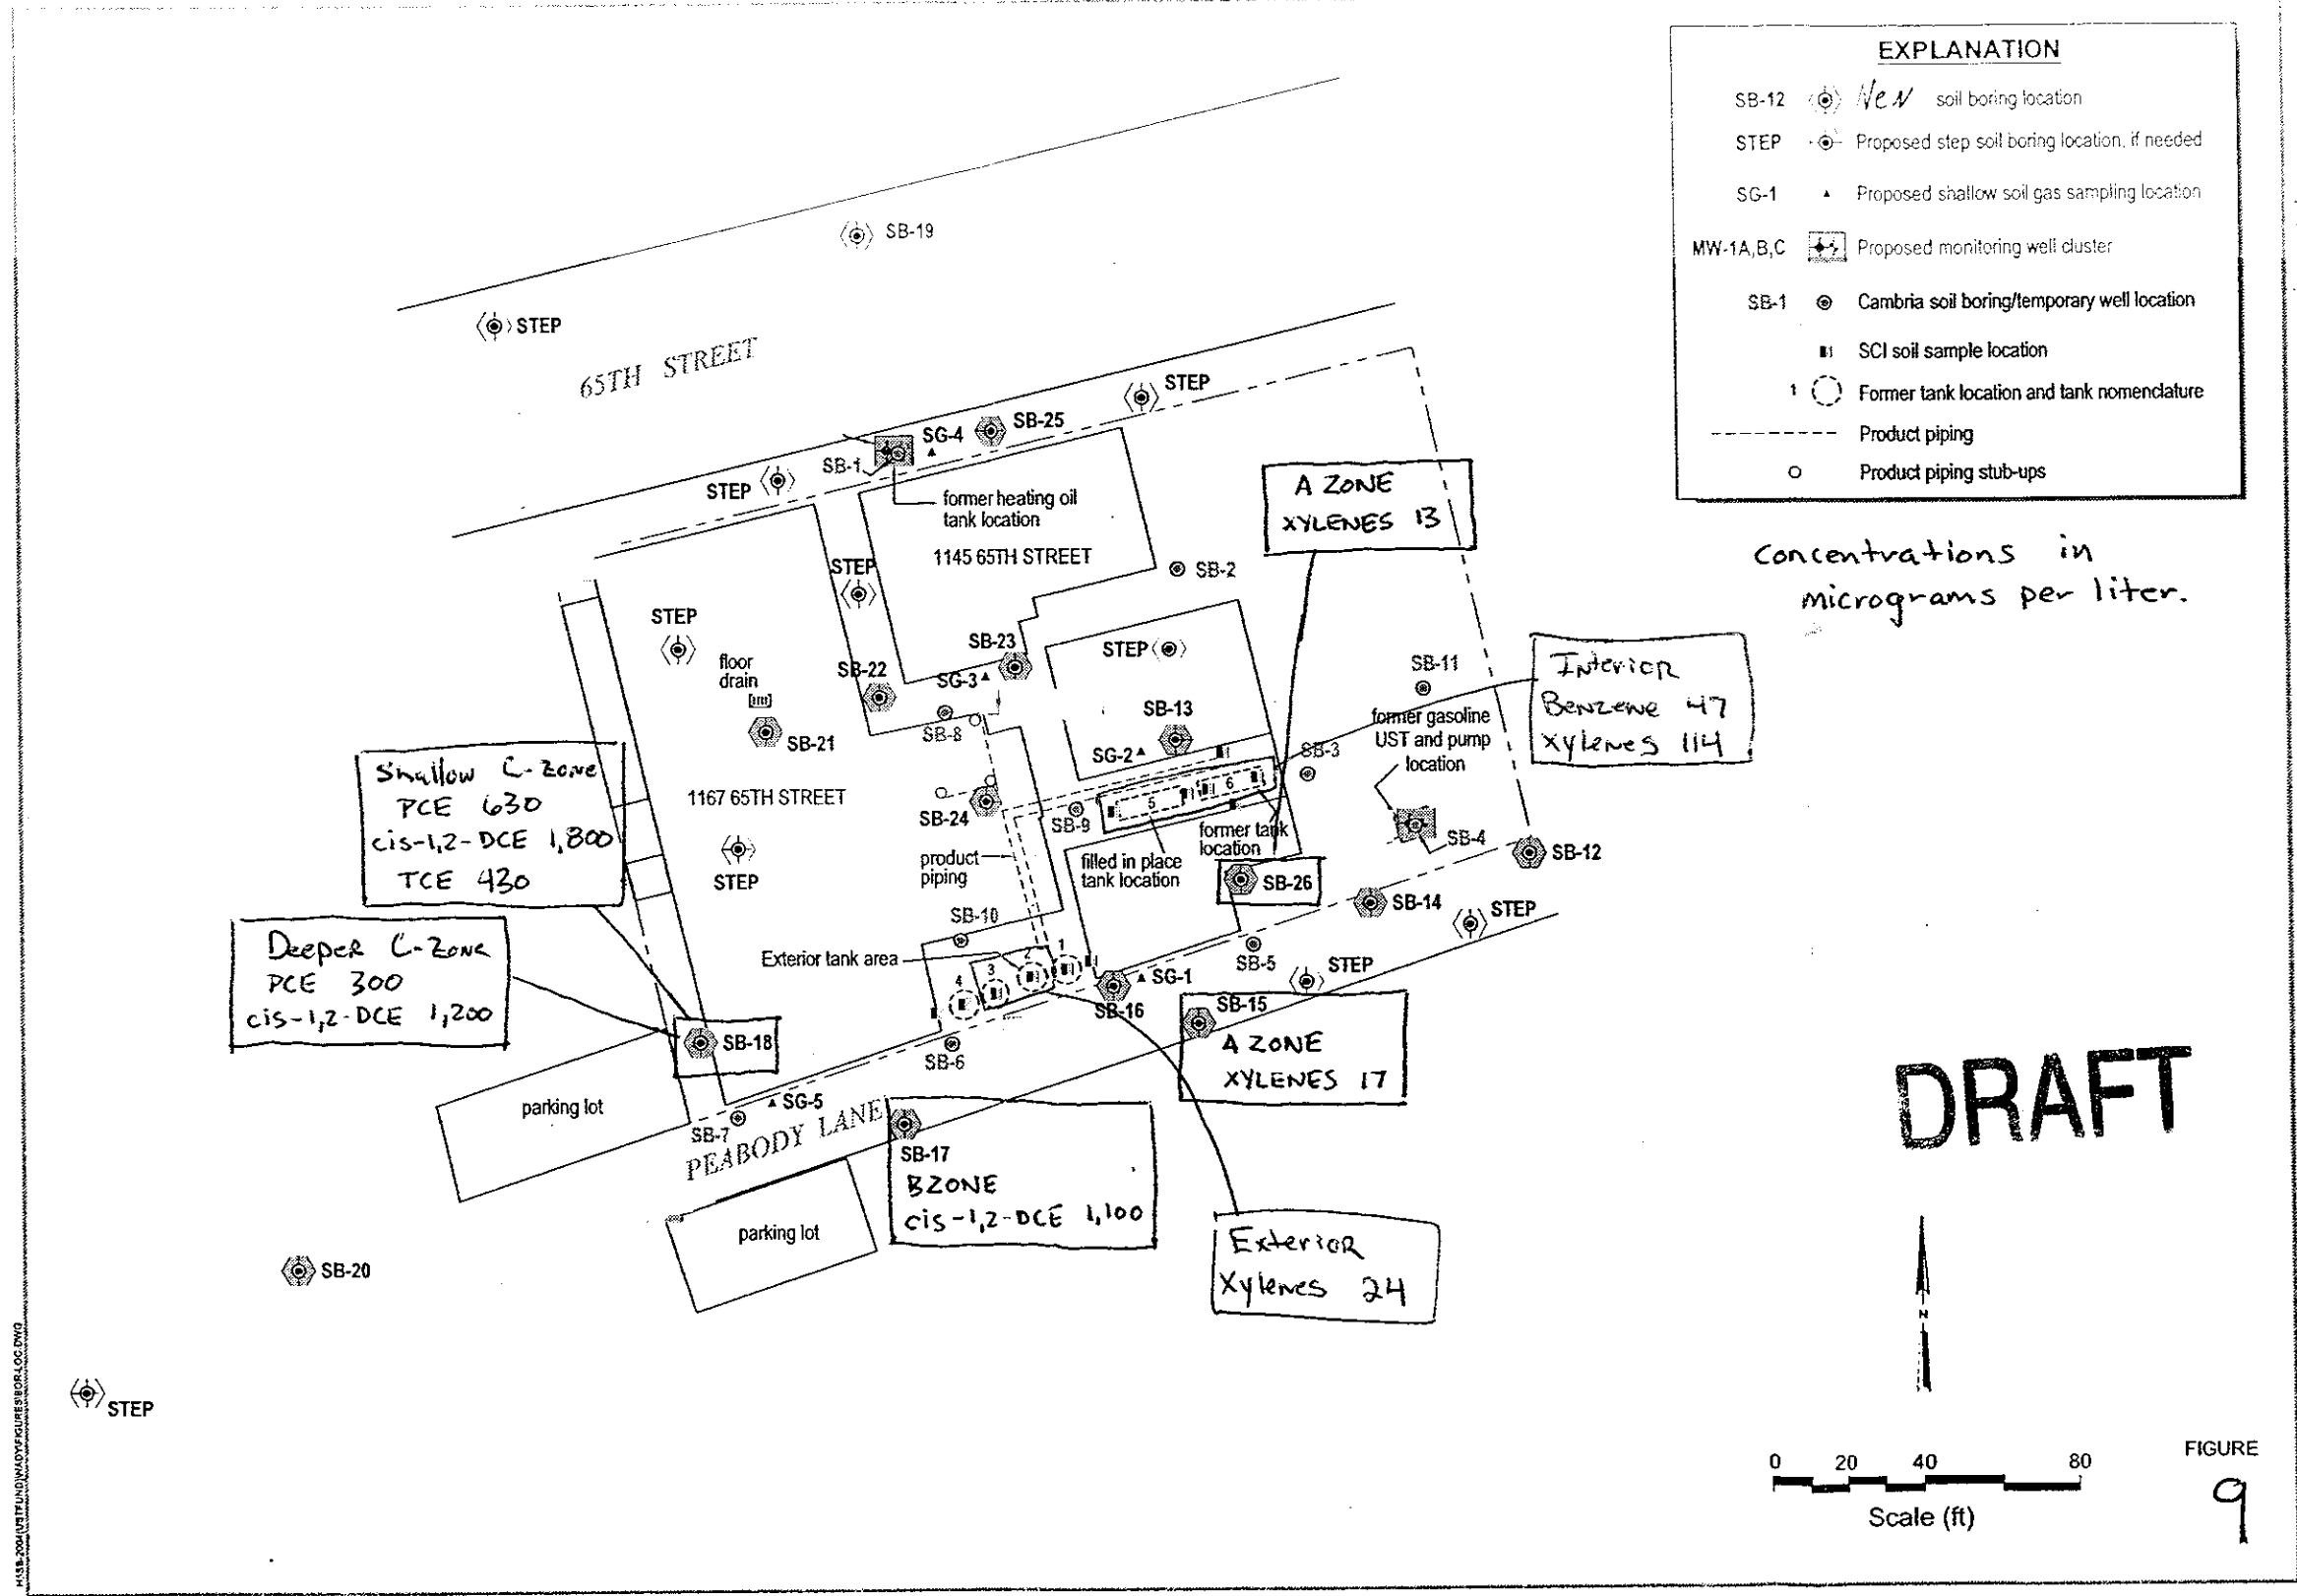 EXPLANATION
SB-12 New soil boring location
STEP Proposed step soil boring location, if needed
SG-1 Proposed shallow soil gas sampling location
MW-1A,B,C Proposed monitoring well cluster
SB-1 Cambria soil boring/temporary well location
SCI soil sample location
1 Former tank location and tank nomenclature
Product piping
Product piping stub-ups
Concentrations in
micrograms per liter.
SB-19
STEP
65TH STREET
STEP
SB-25
SG-4
SB-1
STEP
former heating oil
tank location
1145 65TH STREET
A ZONE
XYLENES 13
SB-2
STEP
STEP
floor
drain
SB-22
SB-23
SG-3
STEP
SB-11
Interior
Benzene 47
Xylenes 114
SB-13
SG-2
SB-8
SB-21
SB-3
former gasoline
UST and pump
location
Shallow C-Zone
PCE 630
cis-1,2-DCE 1,800
TCE 430
1167 65TH STREET
SB-24
SB-9
5
6
former tank
location
filled in place
tank location
product
piping
STEP
SB-4
SB-12
SB-26
SB-14
STEP
SB-10
Exterior tank area
1
2
3
4
SB-5
STEP
SG-1
SB-16
Deeper C-Zone
PCE 300
cis-1,2-DCE 1,200
SB-18
SB-6
SB-15
A ZONE
XYLENES 17
parking lot
SG-5
SB-7
PEABODY LANE
SB-17
B ZONE
cis-1,2-DCE 1,100
parking lot
Exterior
Xylenes 24
SB-20
STEP
DRAFT
N
0 20 40 80
Scale (ft)
FIGURE
9